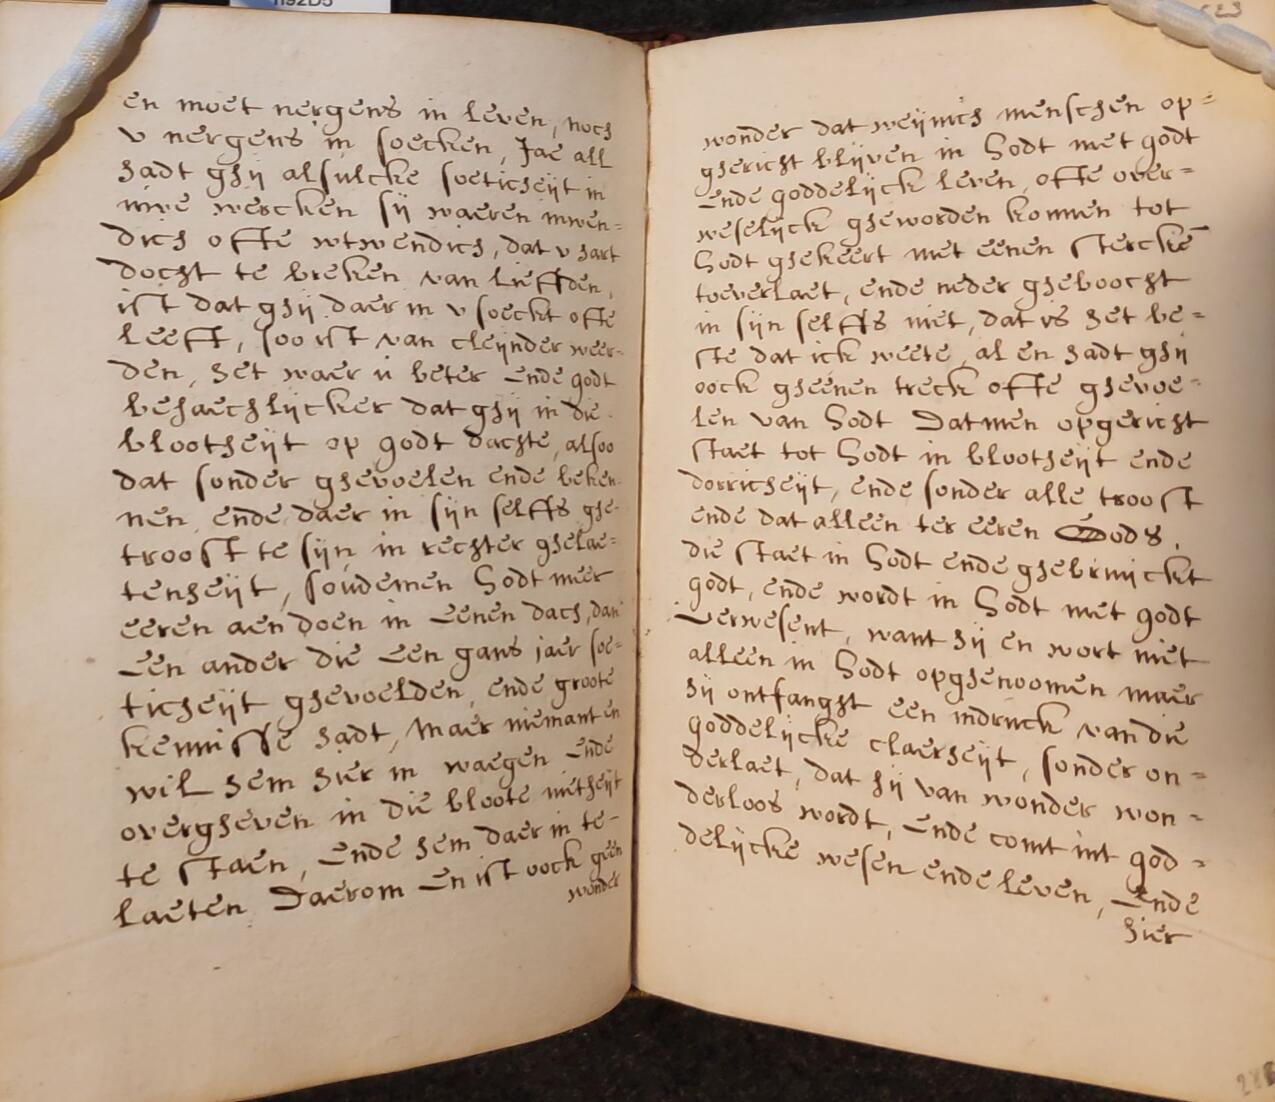 en moet nergens in leven, noch
v nergens in soecken, Jae all
hadt ghij alsulcke soeticheijt in
uwe wercken sij waeren inwen=
dich ofte wtwendich, dat v hart
docht te breken van liefften,
ist dat ghij daer in v soeckt ofte
leeft, soo ist van cleijnder weer=
den, het waer u beter ende godt
behaechlijcker dat ghij in die
blootheijt op godt dachte, alsoo
dat sonder ghevoelen ende beken=
nen, ende daer in sijn selffs ghe=
troost te sijn in rechter ghelae=
tenheijt, soudemen Godt meer
eeren aen doen in eenen dach, dan
een ander die een gans jaer soe=
ticheijt ghevoelden, ende groote
kennisse hadt, maer niemant en
wil hem hier in waegen ende
overgheven in die bloote nietheijt
te staen, ende hem daer in te=
laeten Daerom en ist oock geen
wonder
wonder dat weijnich menschen op=
ghericht blijven in Godt met godt
ende goddelijck leven, ofte over=
weselijck gheworden konnen tot
Godt ghekeert met eenen sterckē
toeverlaet, ende neder gheboocht
in sijn selffs niet, dat is het be=
ste dat ick weete, al en hadt ghij
oock gheenen treck ofte ghevoe=
len van Godt Datmen opgericht
staet tot Godt in blootheijt ende
dorricheijt, ende sonder alle troost
ende dat alleen ter eeren Gods.
die staet in Godt ende ghebruickt
godt, ende wordt in Godt met godt
verwesent, want hij en wort niet
alleen in Godt opghenoomen maer
hij ontfanght een indruck van die
goddelijcke claerheijt, sonder on=
derlaet, dat hij van wonder won=
derloos wordt, ende comt int god=
delijcke wesen ende leven, ende
hier